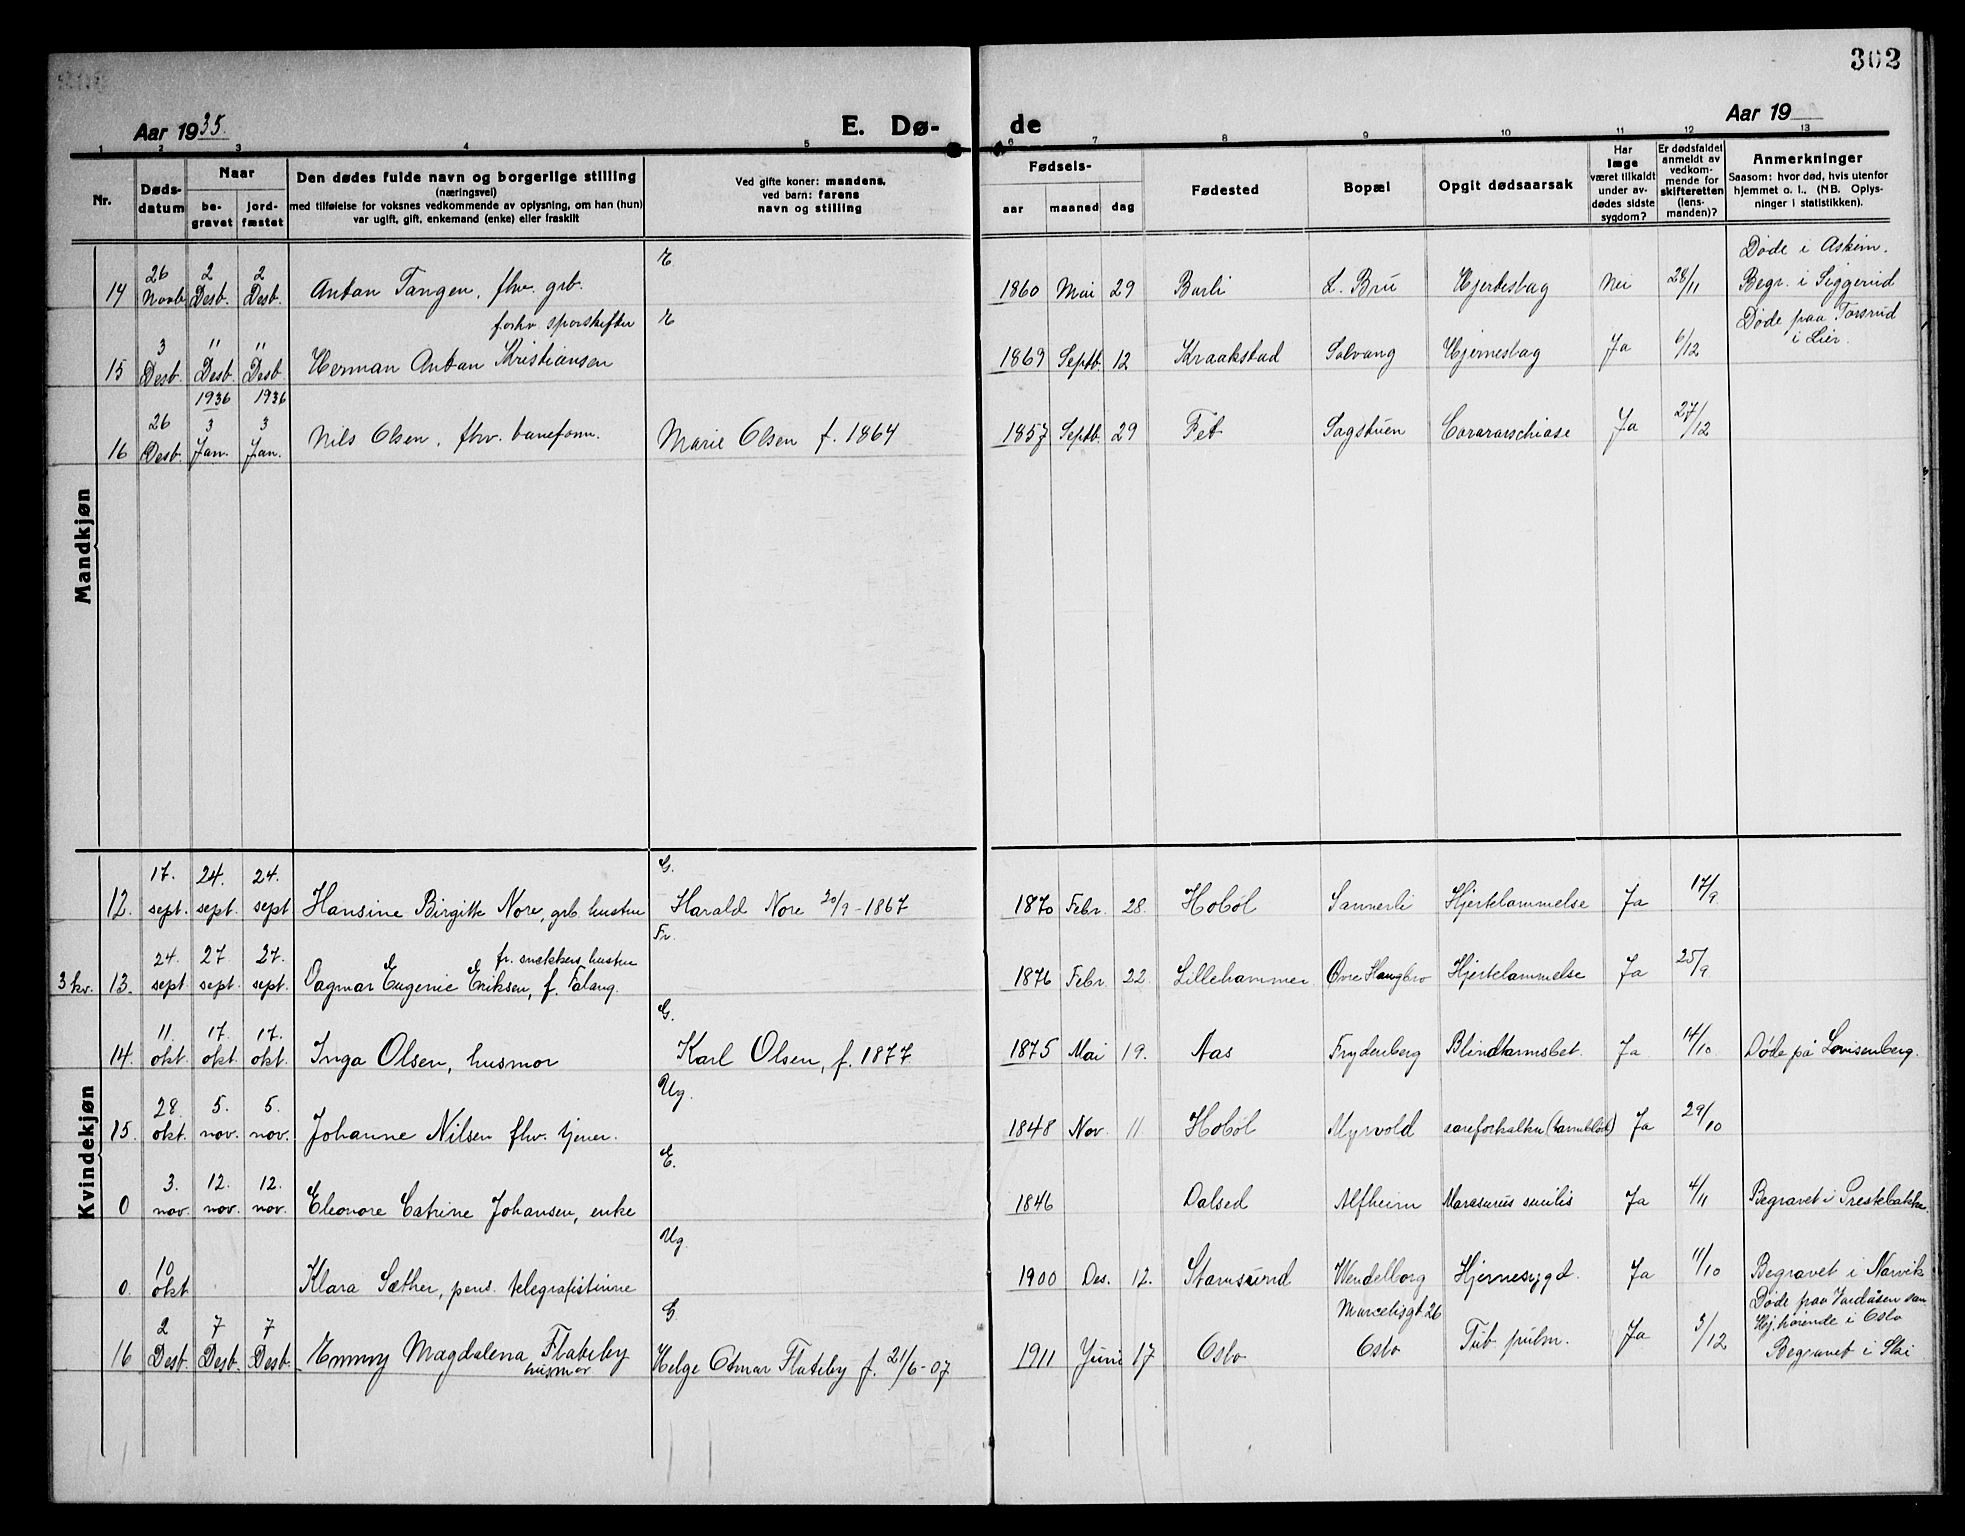 302
Aar 1935.
E. Dø-
de
Aar 19
1 2 3 4 5 6 7 8 9 10 11 12 13
Nr.
Døds-
datum
Naar
be-
gravet
jord-
fæstet
Den dødes fulde navn og borgerlige stilling
(næringsvei)
med tilføielse for voksnes vedkommende av oplysning, om han (hun)
var ugift, gift, enkemand (enke) eller fraskilt
Ved gifte koner: mandens,
ved barn: farens
navn og stilling
Fødsels-
aar maaned dag
Fødested
Bopæl
Opgit dødsaarsak
Har
læge
været tilkaldt
under av-
dødes sidste
sygdom?
Er dødsfaldet
anmeldt av
vedkom-
mende for
skifteretten
(lens-
manden)?
Anmerkninger
Saasom: hvor død, hvis utenfor
hjemmet o. l.. (NB. Oplys-
ninger i statistikken).
Mandkjøn
E Døde i Askim.
26 2 2
14 Novb. Desb. Desb. Anton Tangen, fhv. grb. 1860 Mai 29 Barli L. Bru Hjerteslag Nei 28/11 Begr. i Siggerud
forhv. sporskifter E Døde paa Torsrud
i Lier.
3 " "
15 Desb. Desb. Desb. Herman Anton Kristiansen 1869 Septb. 12 Kraakstad Solvang Hjerneslag Ja 6/12
1936 1936
26 3 3
16 Desb. Jan. Jan. Nils Olsen, fhv. baneform. Marie Olsen f. 1864 1857 Septb. 29 Fet Sagstuen Ja 27/12
Kvindekjøn
17. 24. 24. G.
12. sept. sept. sept Hansine Birgitte Nore, grb. hustru Harald Nore 20/9-1867 1870 Febr. 28. Hobøl Sannerli Hjertelammelse Ja 17/9
24. 27. 27. fr. snekkers hustru Fr.
3 kv. 13. sept sept. sept. Dagmar Eugenie Eriksen, f. Falang. 1876 Febr. 22. Lillehammer Øvre Haugbro Hjertelammelse Ja 25/9
11. 17. 17. G.
14. okt. okt. okt. Inga Olsen, husmor Karl Olsen, f. 1877 1875 Mai 19. Aas Frydenberg Blindtarmsbet. Ja 14/10 Døde på Lovisenberg.
28. 5. 5. Ug.
15. okt. nov. nov. Johanne Nilsen fhv. tjener. 1848 Nov. 11 Hobøl Myrvold Ja 29/10
3. 12. 12. E.
0 nov. nov. nov. Eleonore Catrine Johansen, enke 1846 Dalsed Alfheim Marasmus senilis Ja 4/11 Begravet i Prestebakke.
10 Ug.
0. okt Klara Sæther, pens. telegrafistinne 1900 Des. 12. Stamsund Wendelborg Hjernesygd. Ja 11/10 Begravet i Narvik
2 7 7 G. Marcelisgt. 26 Døde paa Vardåsen san
Hj. hørende i Oslo
16 Desb. Desb. Desb. Emmy Magdalena Flateby Helge Otmar Flateby f. 21/6-07 1911 Juni 17 Oslo Oslo Tub pulm. Ja 3/12 Begravet i Ski
husmor